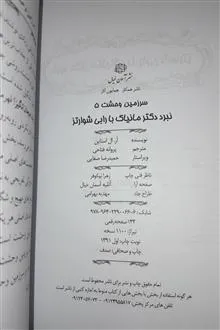 نشر آسمان خیال
ناشر همکار: جمایون آثار
سرزمین وحشت ۵
نبرد دکتر مانیاک با رابی شوارتز
نویسنده: آر. ال استاین
مترجم: پروانه فتاحی
ویراستار: حمیدرضا صفایی
ناظر فنی چاپ: زهرا نیکوفر
صفحه آرا: آتلیه آسمان خیال
طراح جلد: مهدیه بهرامی
شابک: ۹۷۸-۹۶۴-۲۲۹۰-۶۶-۰۶
۱۴۴ صفحه رقعی
تیراژ: ۱۱۰۰ نسخه
نوبت چاپ: اول ۱۳۹۱
چاپ و صحافی: صدف
تمام حقوق چاپ و نشر برای ناشر محفوظ است.
هر گونه استفاده از بخش یا بخش هایی از کتاب منوط به اجازه کتبی از ناشر است.
تلفن های مرکز پخش: